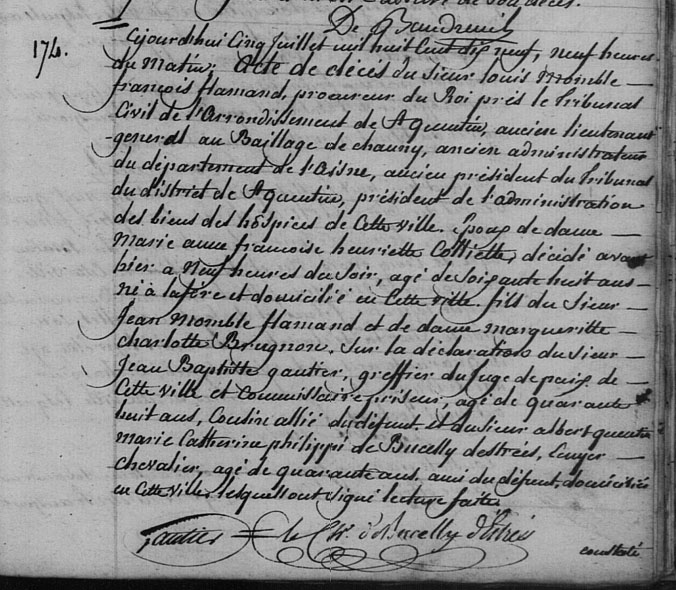 De Baudreuil
174.
Cejourd'hui Cinq Juillet mil huit Cent dix neuf, neuf heures
du Matin; Acte de décès du Sieur Louis Momble
françois flamand, procureur du Roi près le Tribunal
Civil de l'arrondissement de St quentin, ancien lieutenant
general au Baillage de chauny, ancien administrateur
du département de l'aisne, ancien président du Tribunal
du district de St quentin, président de l'administration
des biens des hospices de Cette ville. Epoux de dame
Marie anne francoise henriette Colliette, décidé avant
hier a Neuf heures du Soir, agé de Soixante huit ans
né à lafere et domicilié en Cette ville. fils du Sieur
Jean Momble flamand et de dame margueritte
charlotte Brugnon. Sur la déclaration du Sieur
Jean Baptiste gautier, greffier du Juge de paix de
Cette ville et Commissaire priseur, agé de quarante
huit ans, Cousin allié du défunt. et du Sieur albert quentin
Marie Catherine philippe de Bucelly destrées, Ecuyer
chevalier, agé de quarante ans. ami du défunt, domiciliés
en Cette ville, lesquels ont Signé lecture faite.
Gautier le Chr. d'Bucelly d'Estrées
constaté